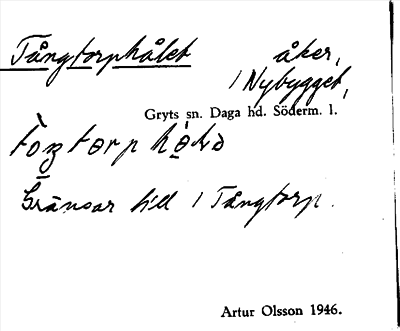 Tångtorphålet åker,
/ Nybygget,
Gryts sn. Daga hd. Söderm. l.
Gränsar till / Tångtorp.
Artur Olsson 1946.